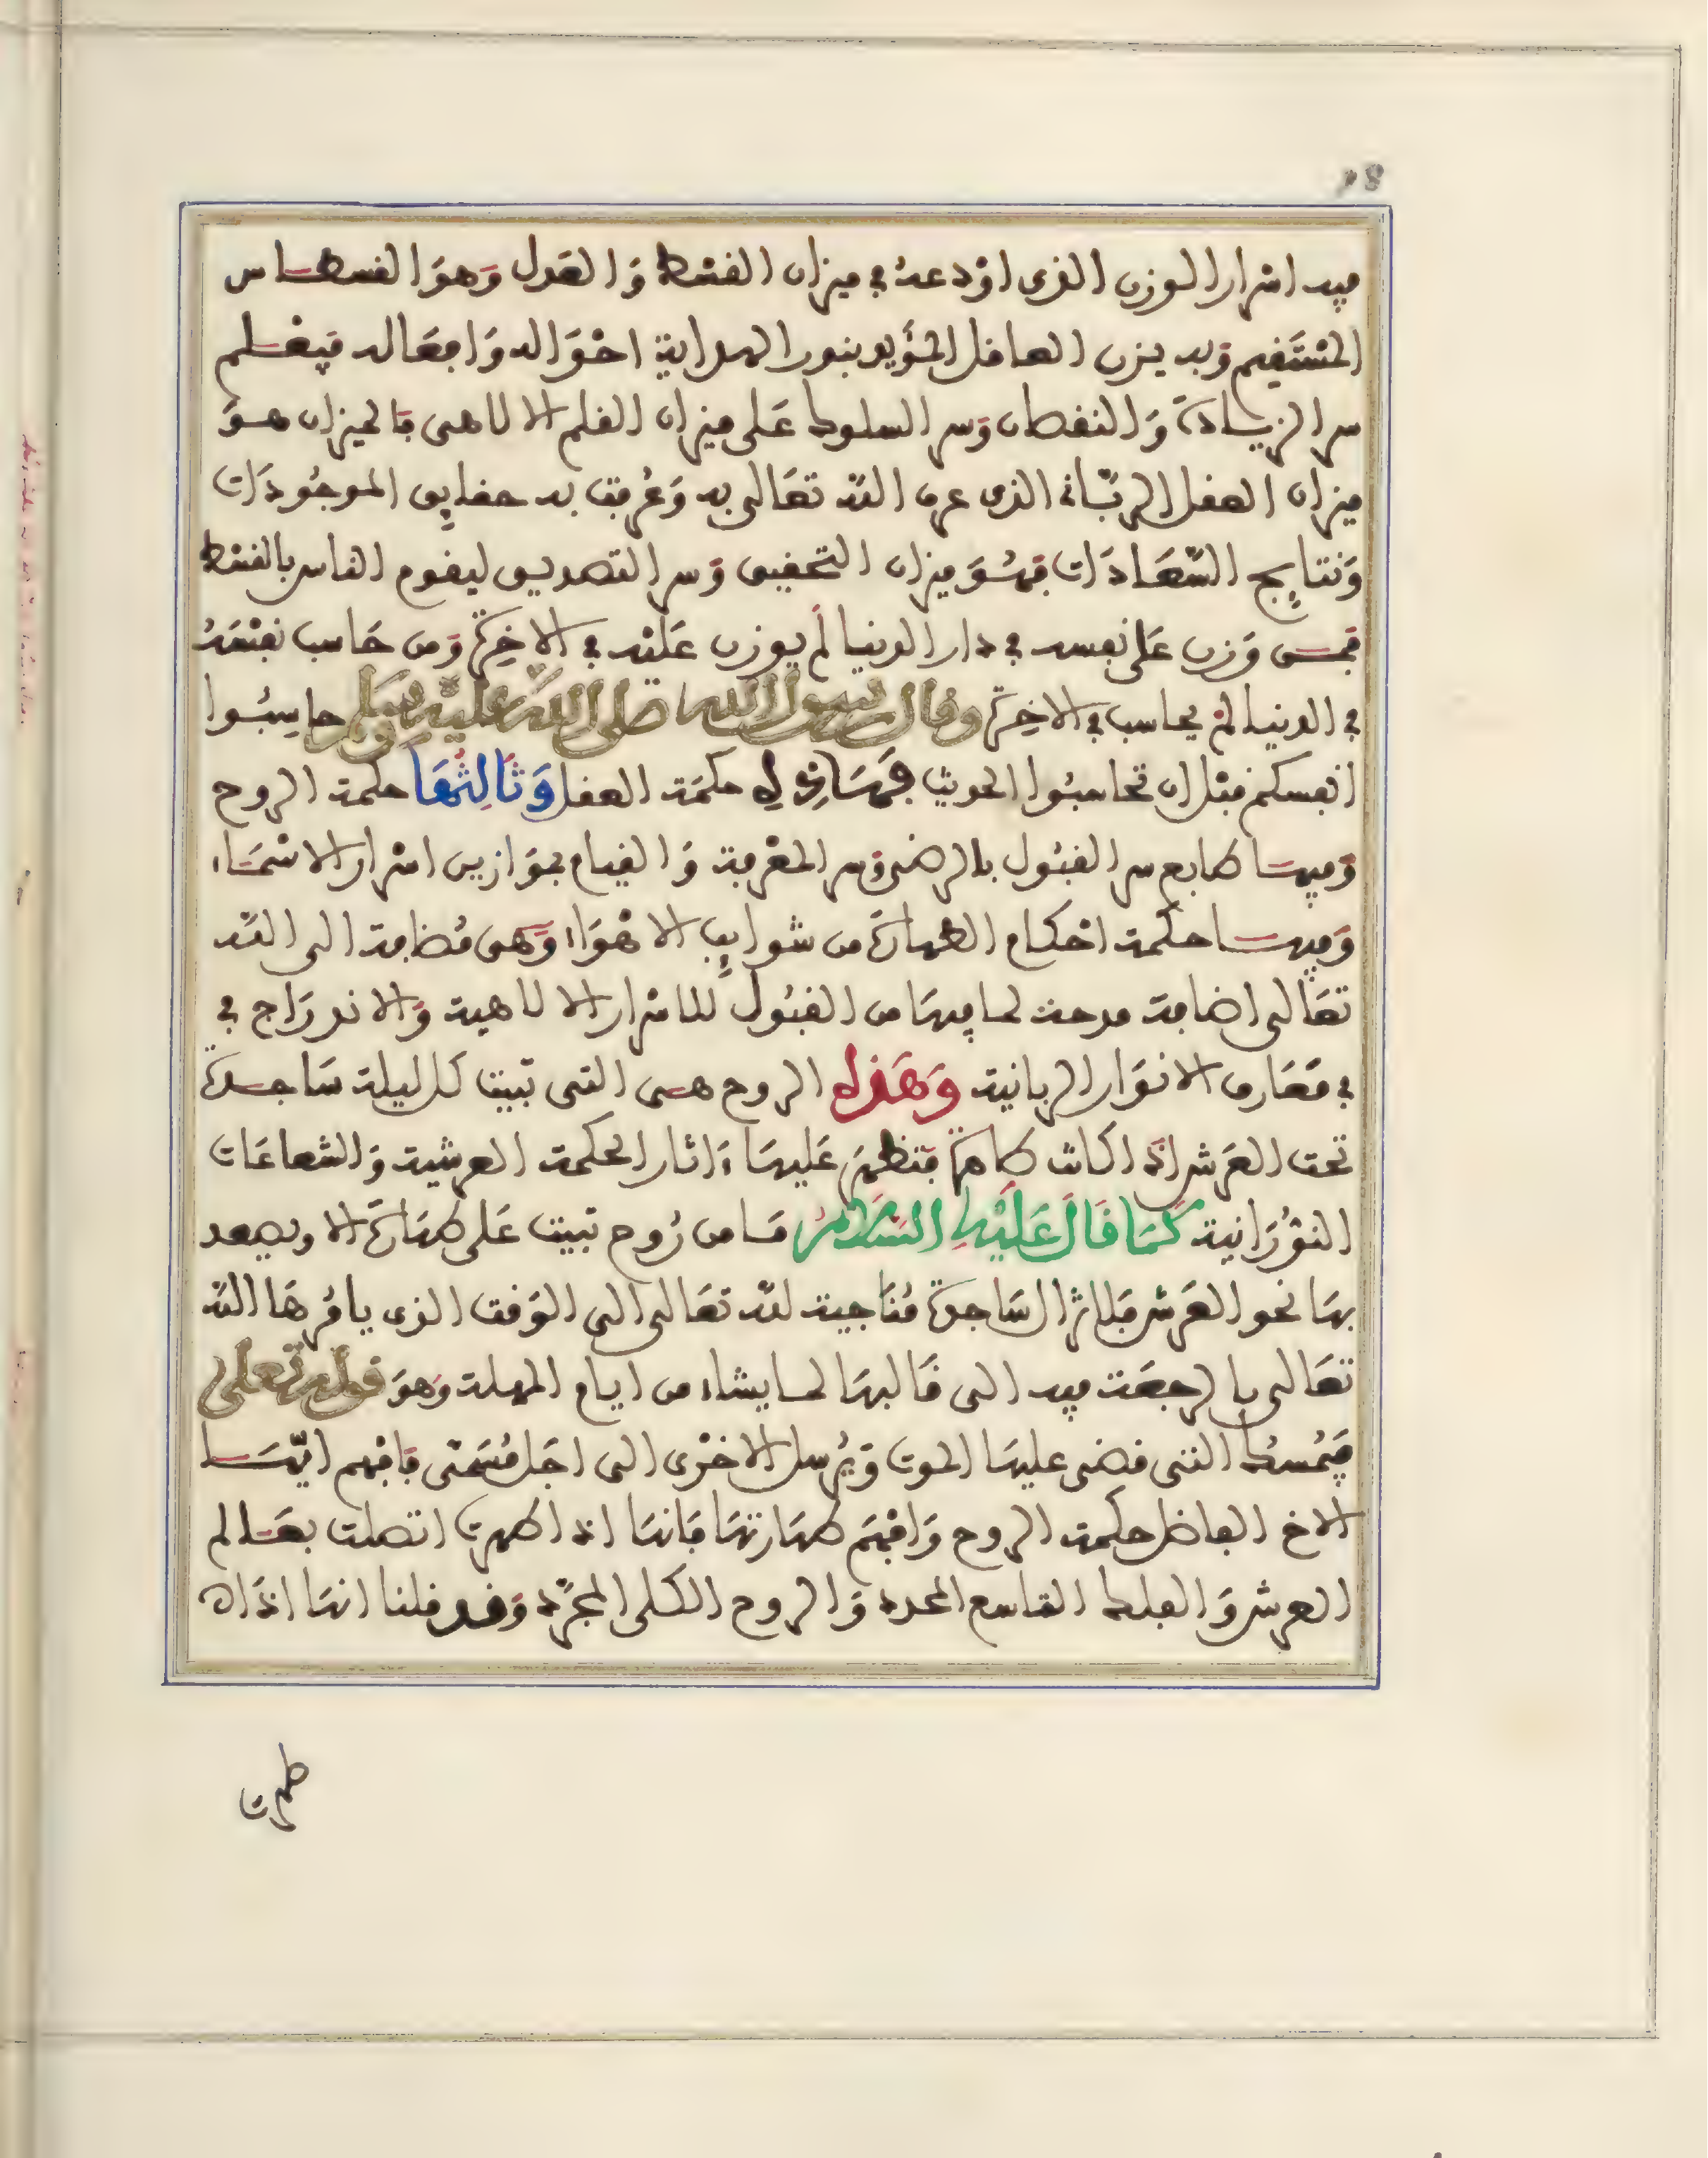 فيه اسرار الوزن الذي اودعه في ميزان القسط وَالعَدل وَهوَ القسطاس
المسْتَقِيم وَبه يزن العاقل المؤَيد بنور الهداية احْوَاله وَافعَاله فيَعْلم
سر الزيادةَ وَالنقصان وَسر السلوك عَلى ميزان القلم الالاهي فَالميزان هوَ
ميزان العقل الربّاني الذي عرف اللّه تعَالى به وَعُرفت به حقايِق الموجُودَات
وَنتايِج السّعَادَات فهُوَ ميزان التحقيق وَسر التصديق ليقوم الناس بالقسْط
فمن وَزن عَلى نفسه في دار الدنيا لَم يوزن عَليْه في الاخِرة وَمن حَاسب نفسَهُ
في الدنيا لمْ يحاسب في الاخِرة وقال رسول الله صلى اللّه عليه وسلم حاسِبُوا
انفسكم قبْل ان تحاسبُوا الحديث فهَاذِهِ حكمَة العقل وَثَالِثُهَا حكمة الروح
وَفيها طابع سر القبُول بالرضى وَسر المعْرفة وَالقيام بموَازين اسْرار الاسْمَاء
وَفيها حكمة احْكام الطهارَة من شوايِب الاهْوَاء وَهي مُضافة الى اللّه
تعَالى اضافة مدحة لما فيهَا من القبُول للاسْرار الالاهية وَالاندرَاج في
في مَعَارف الانوَار الربانية وَهَذه الروح هي التي تبيت كل ليلة سَاجدة
تحت العَرَش اذَا كانت طاهرَة فتظهَر عَليهَا ءَاثار الحكمة العرشية وَالشعاعَات
النوُرَانية كَمَا قَالَ عَلَيْهِ السَّلامُ مَا من رُوح تبيت عَلى طهَارَة الا ويصعد
بهَا نحو العَرش فَلا تزال سَاجدة مُنَاجية للّه تعَالى الى الوَقت الذي يامُرهَا اللّه
تعَالى بالرجعَة فيه الى قَالبهَا لما يشاء من ايام المهلة وَهوَ قوله تعلى
فيُمسكُ التي قضى عليهَا الموت وَيُرسل الاخرَى الى اجَل مُسَمّى فَافهم ايّهَا
الاخ الفاضل حكمة الروح وَافهَم طهَارَتهَا فَانهَا اذا طهرت اتصلت بعَالم
العرش وَالفلك التاسع المحدد وَالروح الكلي المجرّد وَقد قلنا انهَا اذَا
طهرت